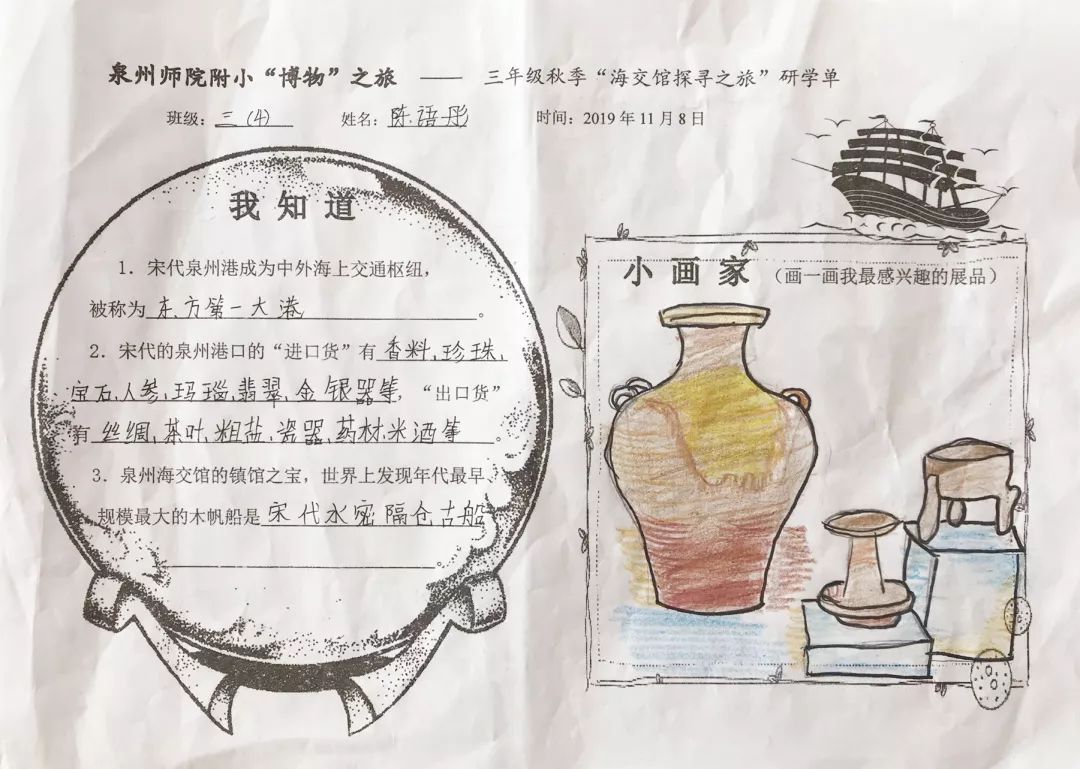 泉州师院附小“博物”之旅 —— 三年级秋季“海交馆探寻之旅”研学单
班级：三(4) 姓名：陈语彤 时间：2019年11月8日
我知道
1．宋代泉州港成为中外海上交通枢纽，
被称为东方第一大港。
2．宋代的泉州港口的“进口货”有香料,珍珠,
宝石,人参,玛瑙,翡翠,金银器等，“出口货”
有丝绸,茶叶,粗盐,瓷器,药材,米酒等。
3．泉州海交馆的镇馆之宝，世界上发现年代最早、
规模最大的木帆船是宋代水密隔仓古船
。
小画家（画一画我最感兴趣的展品）